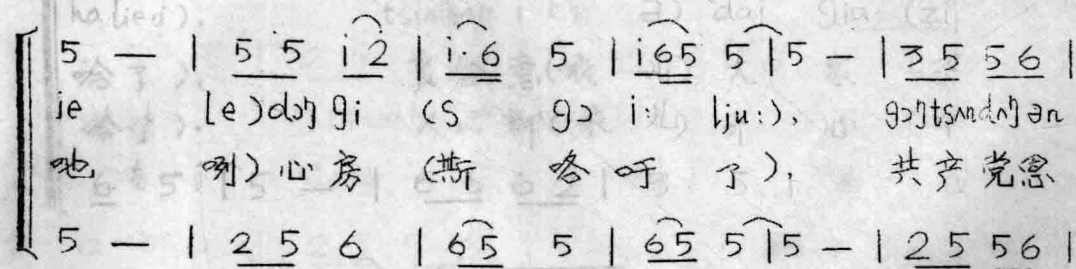 5 — | 5 5 i 2 | i· 6 5 | i 6 5 5 | 5 — | 3 5 5 6 |
ie le) dɔŋ gi (s gɔ i: lju:), gɔŋtsʌndʌŋ ən
吔 咧) 心 房 (斯 咯 吁 了), 共 产 党 恩
5 — | 2 5 6 | 6 5 5 | 6 5 5 | 5 — | 2 5 5 6 |